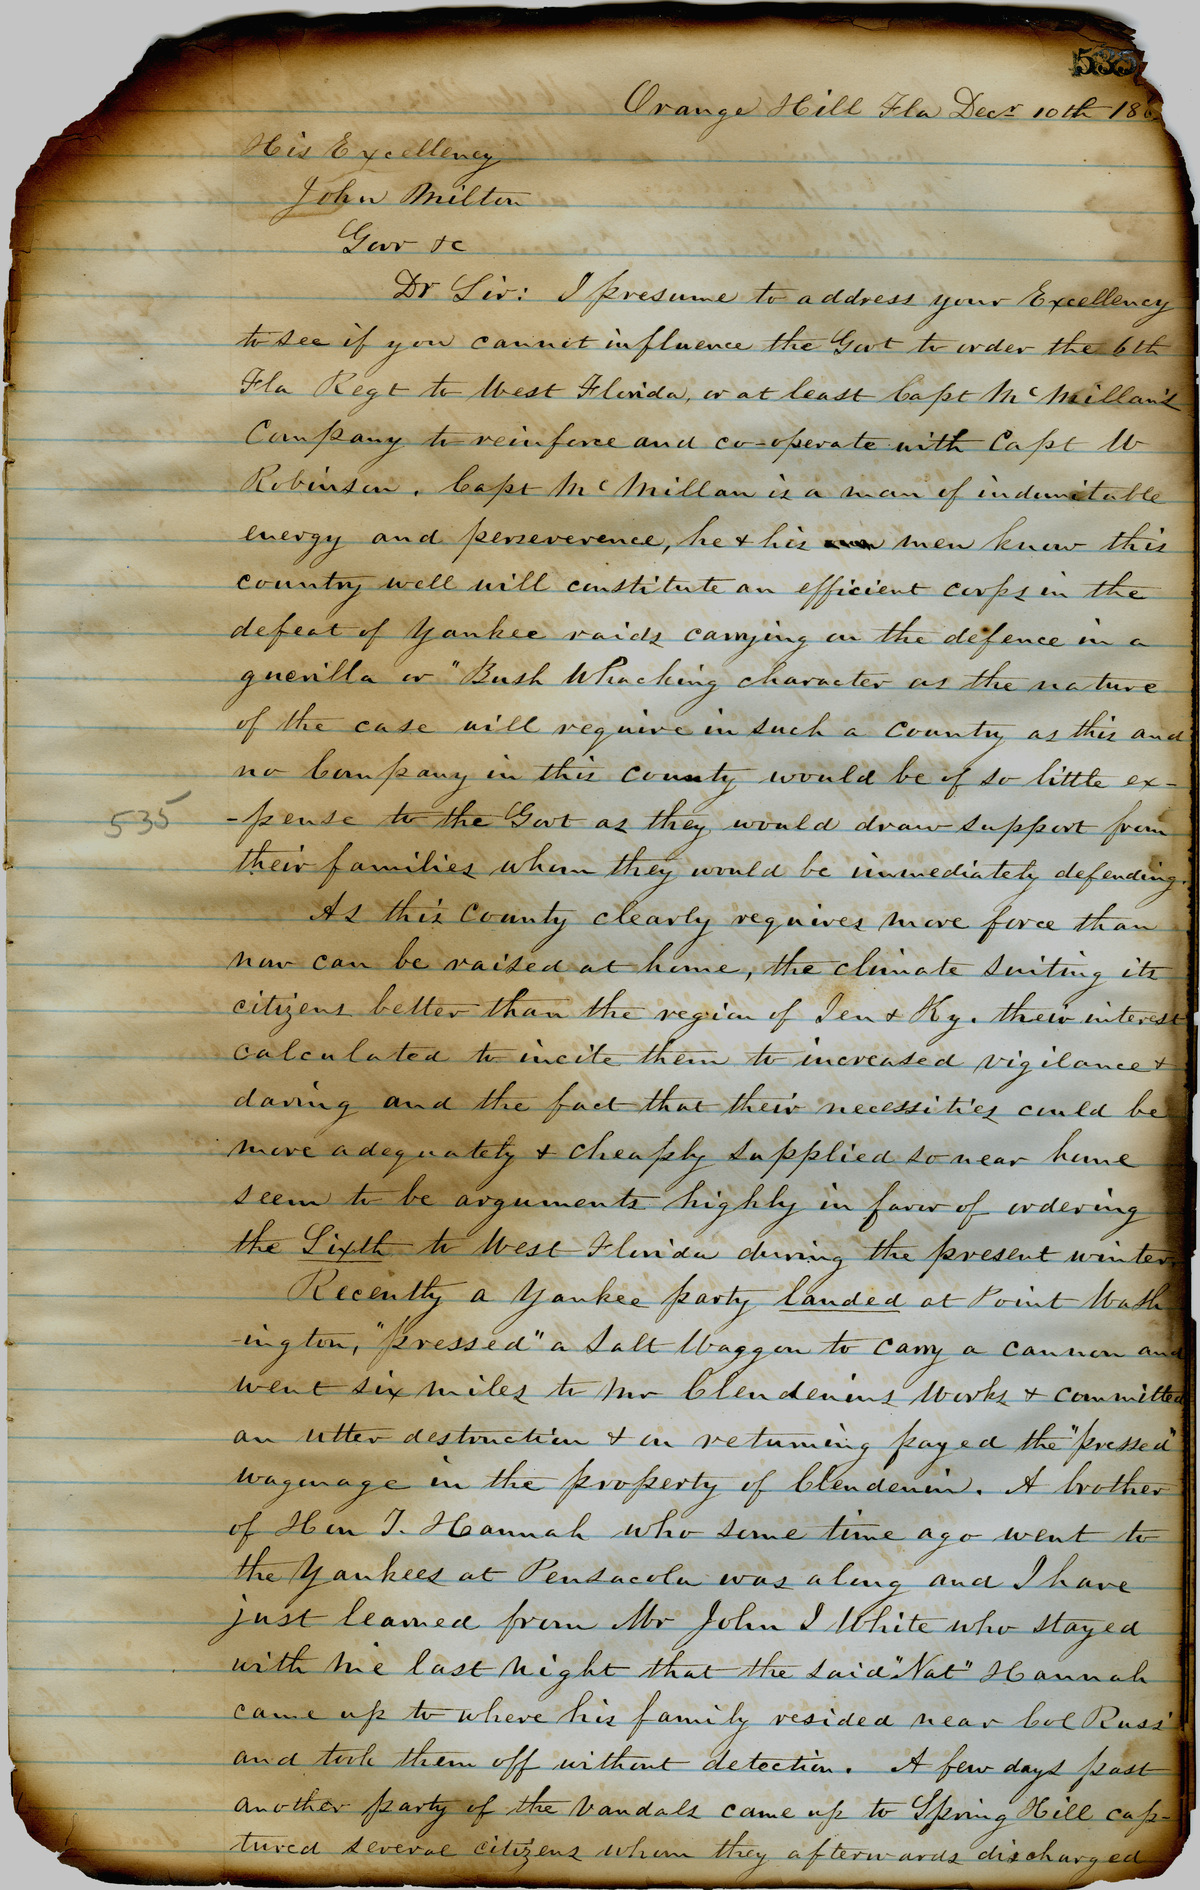 535
Orange Hill Fla Decr 10th 186
His Excellency
John Milton
Govr &c
Dr Sir: I presume to address your Excellency
to see if you cannot influence the Govt to order the 6th
Fla Regt to West Florida, or at least Capt McMillan's
Company to reinforce and co-operate with Capt W
Robinson. Capt McMillan is a man of indomitable
energy and perseverence, he & his men know this
country well will constitute an efficient corps in the
defeat of Yankee raids carrying on the defence in a
guerilla or "Bush Whacking character as the nature
of the case will require in such a County as this and
no Company in this county would be of so little ex-
-pense to the Govt as they would draw support from
535
their families whom they would be immediately defending.
As this County clearly requires more force than
now can be raised at home, the climate suiting its
citizens better than the region of Ten & Ky. their interest
calculated to incite them to increased vigilance &
daring and the fact that their necessities could be
more adequately & cheaply supplied so near home
seem to be arguments highly in favor of ordering
the Sixth to West Florida during the present winter.
Recently a Yankee party landed at Point Wash
-ington, "pressed" a Salt Waggon to carry a cannon and
went six miles to Mr Clendenins Works & committed
an utter destruction & on returning payed the "pressed"
wagonage in the property of Clendenin. A brother
of Hon J. Hannah who some time ago went to
the Yankees at Pensacola was along and I have
just learned from Mr John I White who stayed
with me last night that the said "Nat" Hannah
came up to where his family resided near Col Russ'
and took them off without detection. A few days past
another party of the Vandals came up to Spring Hill cap-
tured several citizens whom they afterwards discharged